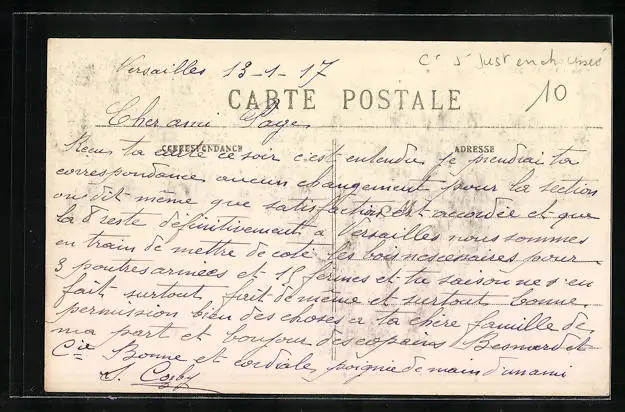 Versailles 13-1-17
Cn St Just en chaussée
CARTE POSTALE
10
Cher ami Page
CORRESPONDANCE
ADRESSE
Recu ta carte ce soir c'est entendu je prendrai ta
correspondance aucun changement pour la section
on dit même que satisfaction est accordée et que
la 8 reste définitivement à Versailles nous sommes
en train de mettre de coté les bois nécessaires pour
3 poutres armées et 15 fermes et tu
fait surtout, fait de même et surtout bonne
permission bien des choses a ta chère famille de
ma part et bonjour des copains Besnard et
Cie Bonne et cordiale poignée de main d'un ami